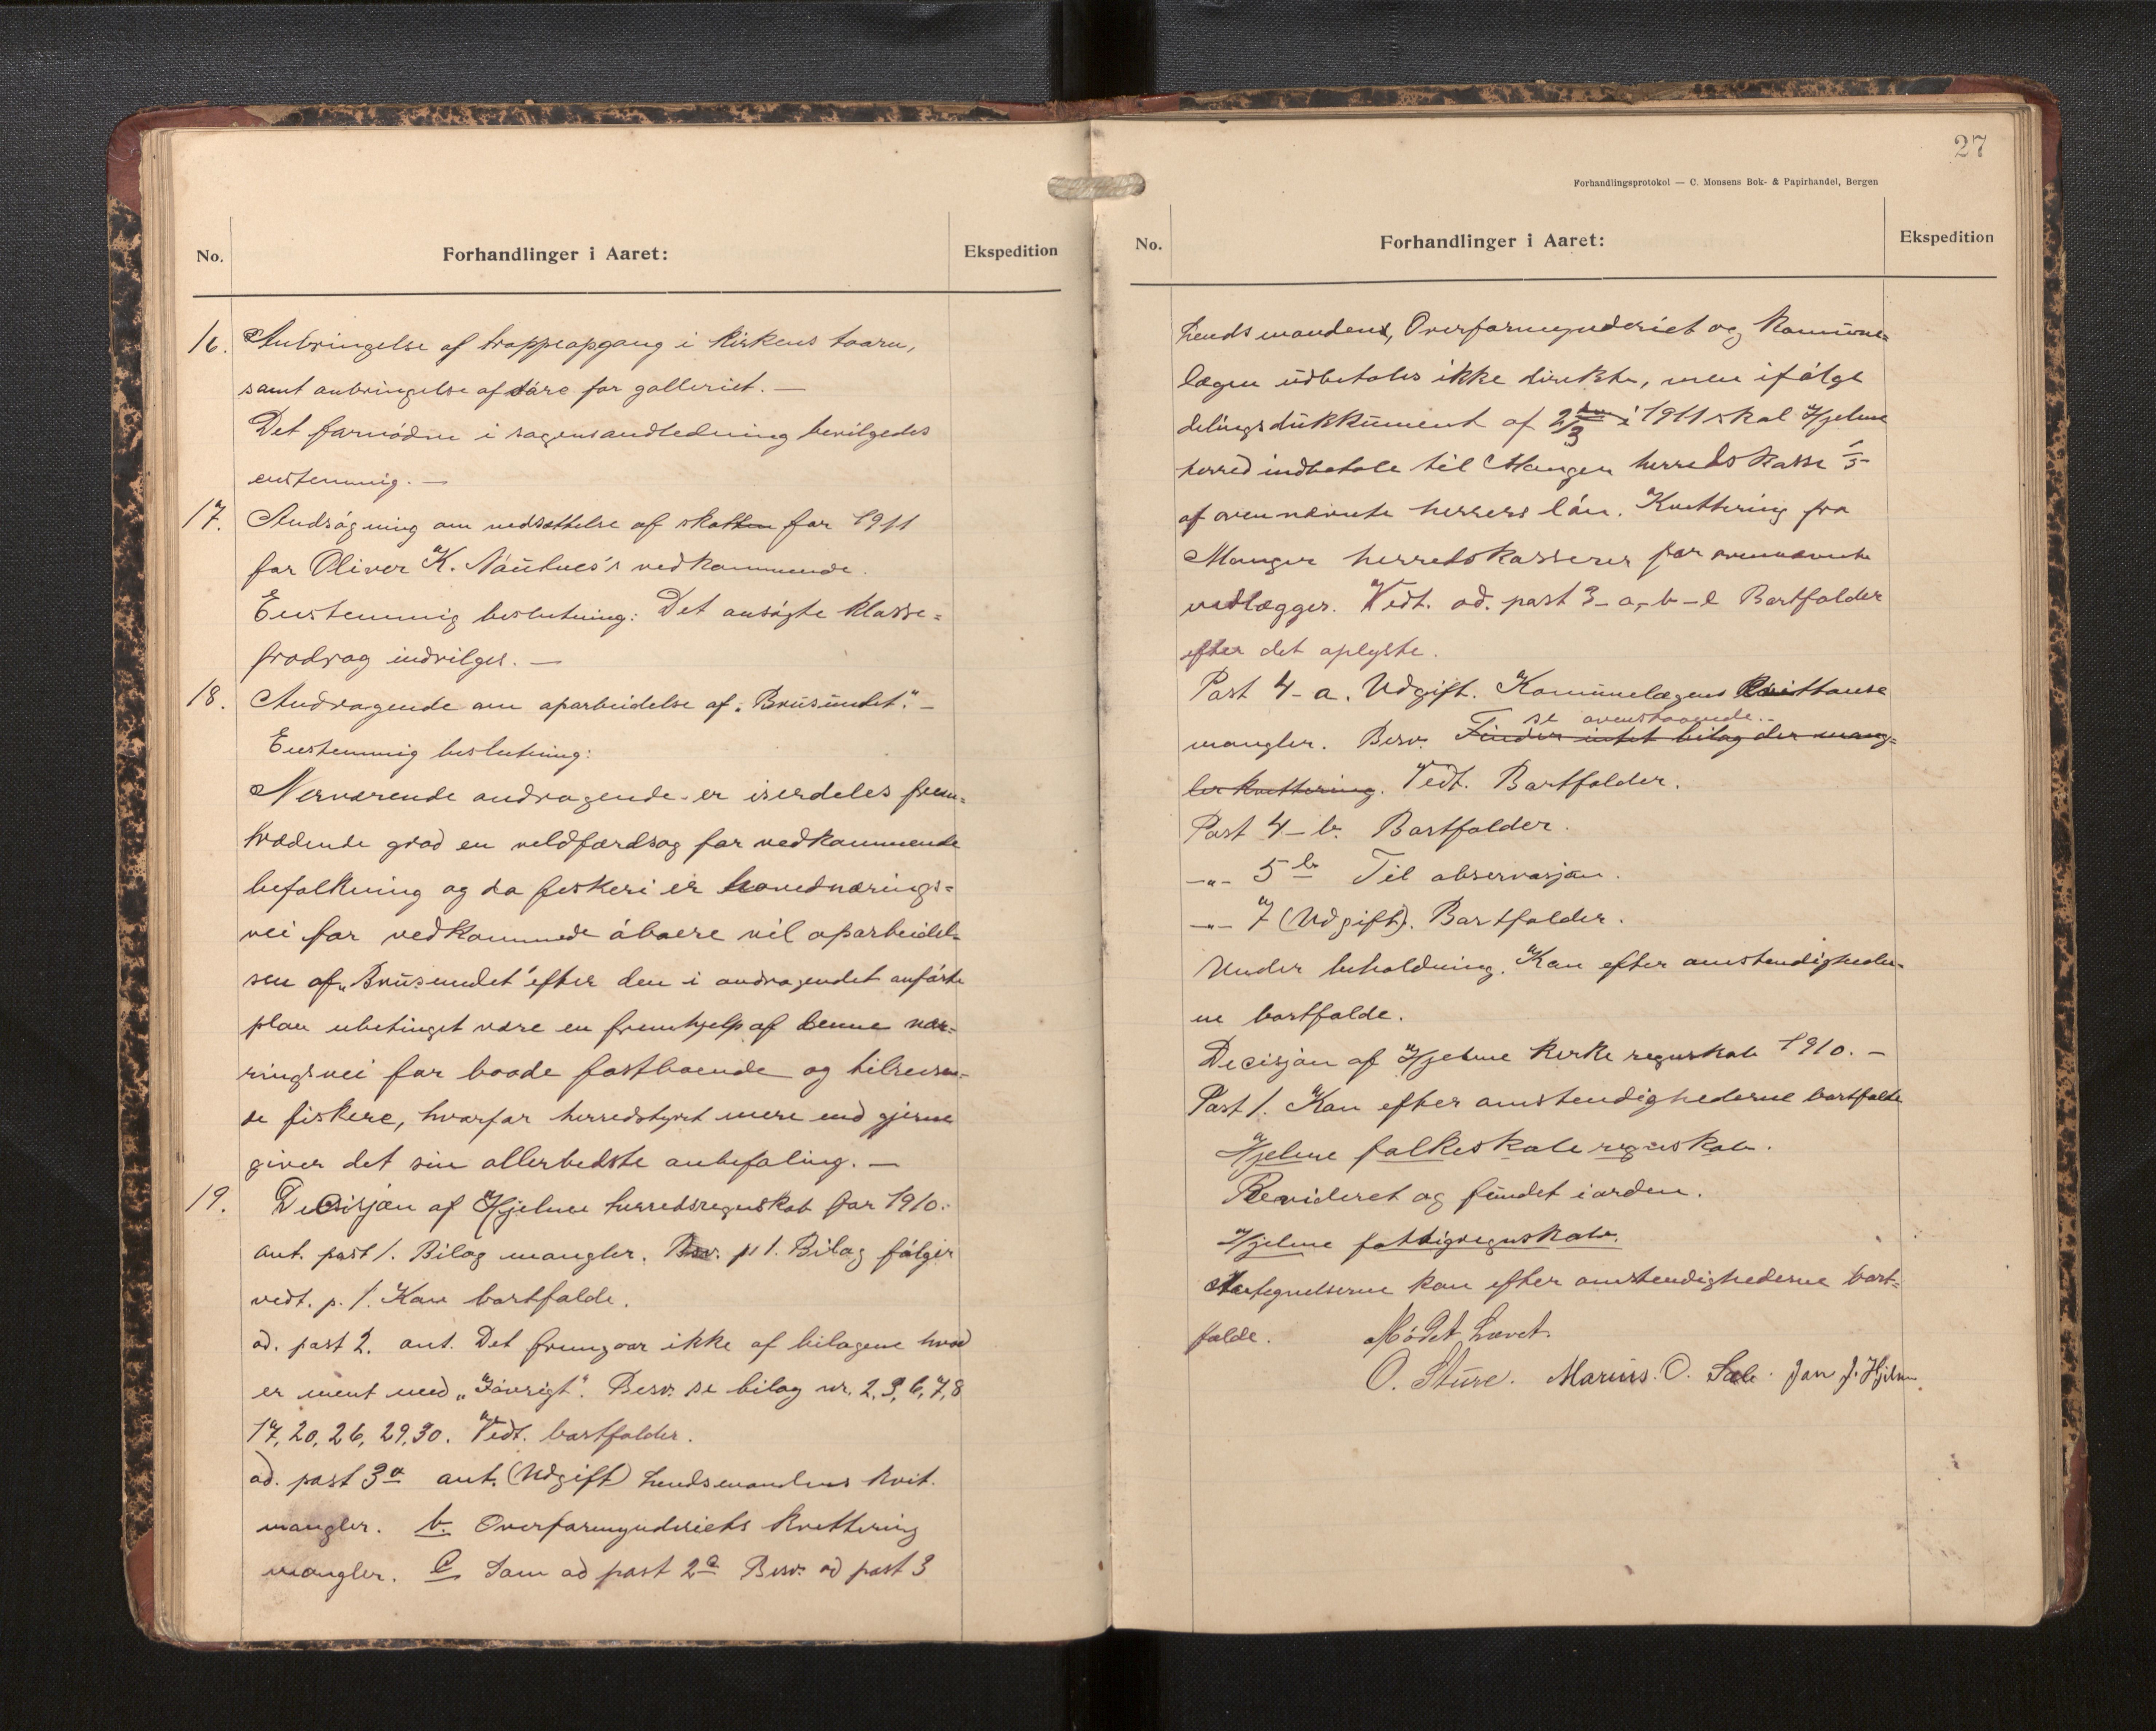 No.
Forhandlinger i Aaret:
Ekspedition
16. Anbringelse af trappeopgang i kirkens taarn,
samt anbringelse af døre for galleriet. —
Det fornødne i sagens andledning bevilgedes
enstemmig. —
17. Andsøgning om nedsættelse af skatten for 1911
for Oliver K. Nåutnes's vedkommende.
Enstemmig beslutning: Det ansøgte klasse=
fradrag indvilges. —
18. Andragende om oparbeidelse af „Brusundet". —
Enstemmig beslutning:
Nerværende andragende er iserdeles frem=
trædende grad en veldfærdsag for vedkommende
befolkning og da fiskeri er hovednærings=
vei for vedkommede åboere vil oparbeidel=
sen af „Brusundet" efter den i andragendet anførte
plan ubetinget være en fremhjelp af denne nær=
ringsvei for baade fastboende og tilreisen=
de fiskere, hvorfor herredstyret mere end gjerne
giver det sin allerbedste anbefaling. —
19. Decisjon af Hjelme herredsregnskab for 1910.
ant. post 1. Bilag mangler. Besv. p 1. Bilag følger
vedt. p. 1. Kan bortfalde.
ad. post 2. ant. Det fremgaar ikke af bilagene hvad
er ment med „Iøvrigt". Besv. se bilag nr. 2, 3, 6, 7, 8
17, 20, 26, 29, 30. Vedt. bortfalder.
ad. post 3a ant. (Udgift) Lendsmandens kvit.
mangler. b. Overformynderiets kvittering
mangler. c Som ad post 2a Besv. ad post 3
27
Forhandlingsprotokol — C. Monsens Bok- & Papirhandel, Bergen
No.
Forhandlinger i Aaret:
Ekspedition
Lendsmandens, Overformynderiet og Komune=
lægen udbetales ikke direkte, men ifølge
delingsdukkument af 2/3 1911 skal Hjelme
herred indbetale til Manger herredskasse 1/5
af ovennævnte herrers løn. Kvittering fra
Manger herredskasserer for ovennævnte
vedlægger. Vedt. ad. post 3-a,-b-c Bortfalder
efter det oplyste.
Post 4-a. Udgift. Komunelægens kvittanse
se ovenstaaende. -
mangler. Besv. Finder intet bilag der mang=
ler kvittering. Vedt. Bortfalder.
Post 4-b. Bortfalder.
—"— 5 b Til observasjon.
—"— 7 (Udgift). Bortfalder.
Under beholdning. Kan efter omstendigheder=
ne bortfalde.
Decisjon af Hjelme kirke regnskab 1910. —
Post 1. Kan efter omstendighederne bortfalde
Hjelme folkeskole regnskab.
Revideret og fundet i orden.
Hjelme fattigregnskab.
Antegnelserne kan efter omstendighederne bort=
falde. Mødet hævet.
O. Sture. Marius. O. Sæle. Jan J. Hjelme